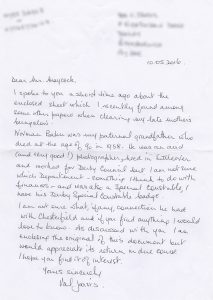 10.05.2016.
Dear Mr. Maycock,
I spoke to you a short time ago about the
enclosed sheet which I recently found among
some other papers when clearing my late mothers
bungalow.
Norman Baker was my paternal grandfather who
died at the age of 90 in 1958. He was an avid
(and very good!) photographer, lived in Littleover
and worked for Derby Council but I am not sure
which Department - something I think to do with
finances - and was also a Special Constable, I
have his Derby Special Constable badge.
I am not sure what, if any, connection he had
with Chesterfield and if you find anything I would
love to know. As discussed with you I am
enclosing the original of this document but
would appreciate its return in due course
I hope you find it of interest.
Yours sincerely